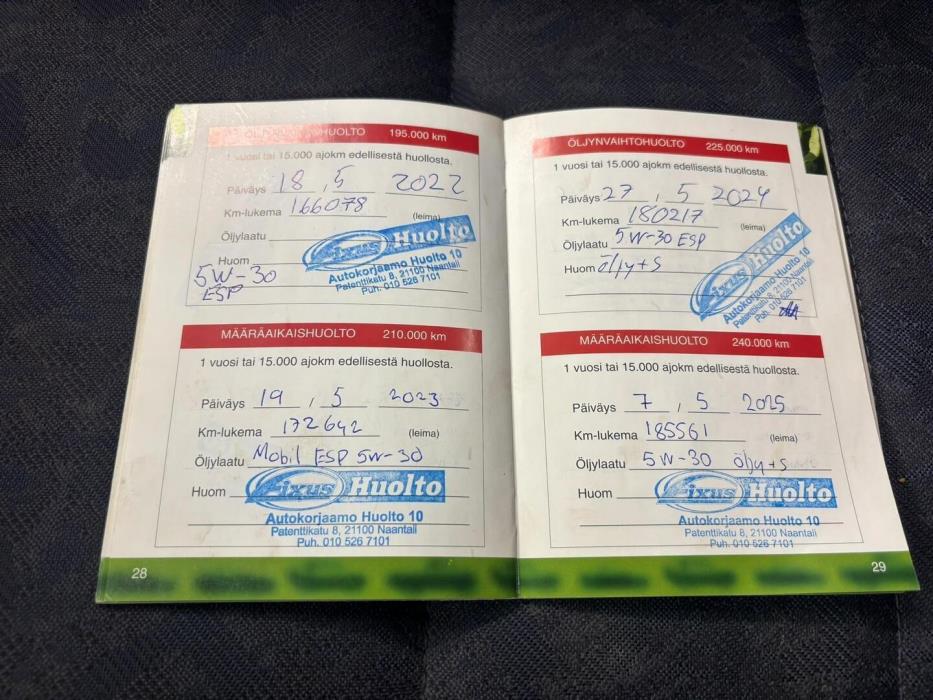 ÖLJYNVAIHTOHUOLTO 195.000 km
1 vuosi tai 15.000 ajokm edellisestä huollosta.
Päiväys 18 , 5 2022
Km-lukema 166078
(leima)
Öljylaatu
Huom
5W-30
ESP
Fixus Huolto
Autokorjaamo Huolto 10
Patenttikatu 8, 21100 Naantali
Puh. 010 526 7101
MÄÄRÄAIKAISHUOLTO 210.000 km
1 vuosi tai 15.000 ajokm edellisestä huollosta.
Päiväys 19 / 5 2023
Km-lukema 172642 (leima)
Öljylaatu Mobil ESP 5W-30
Huom
Fixus Huolto
Autokorjaamo Huolto 10
Patenttikatu 8, 21100 Naantali
Puh. 010 526 7101
28
ÖLJYNVAIHTOHUOLTO 225.000 km
1 vuosi tai 15.000 ajokm edellisestä huollosta.
Päiväys 27 , 5 2024
Km-lukema 180217
(leima)
Öljylaatu 5W-30 ESP
Huom öljy+S
Fixus Huolto
Autokorjaamo Huolto 10
Patenttikatu 8, 21100 Naantali
Puh. 010 526 7101
MÄÄRÄAIKAISHUOLTO 240.000 km
1 vuosi tai 15.000 ajokm edellisestä huollosta.
Päiväys 7 / 5 2025
Km-lukema 185561 (leima)
Öljylaatu 5W-30 öljy+S
Huom
Fixus Huolto
Autokorjaamo Huolto 10
Patenttikatu 8, 21100 Naantali
Puh. 010 526 7101
29